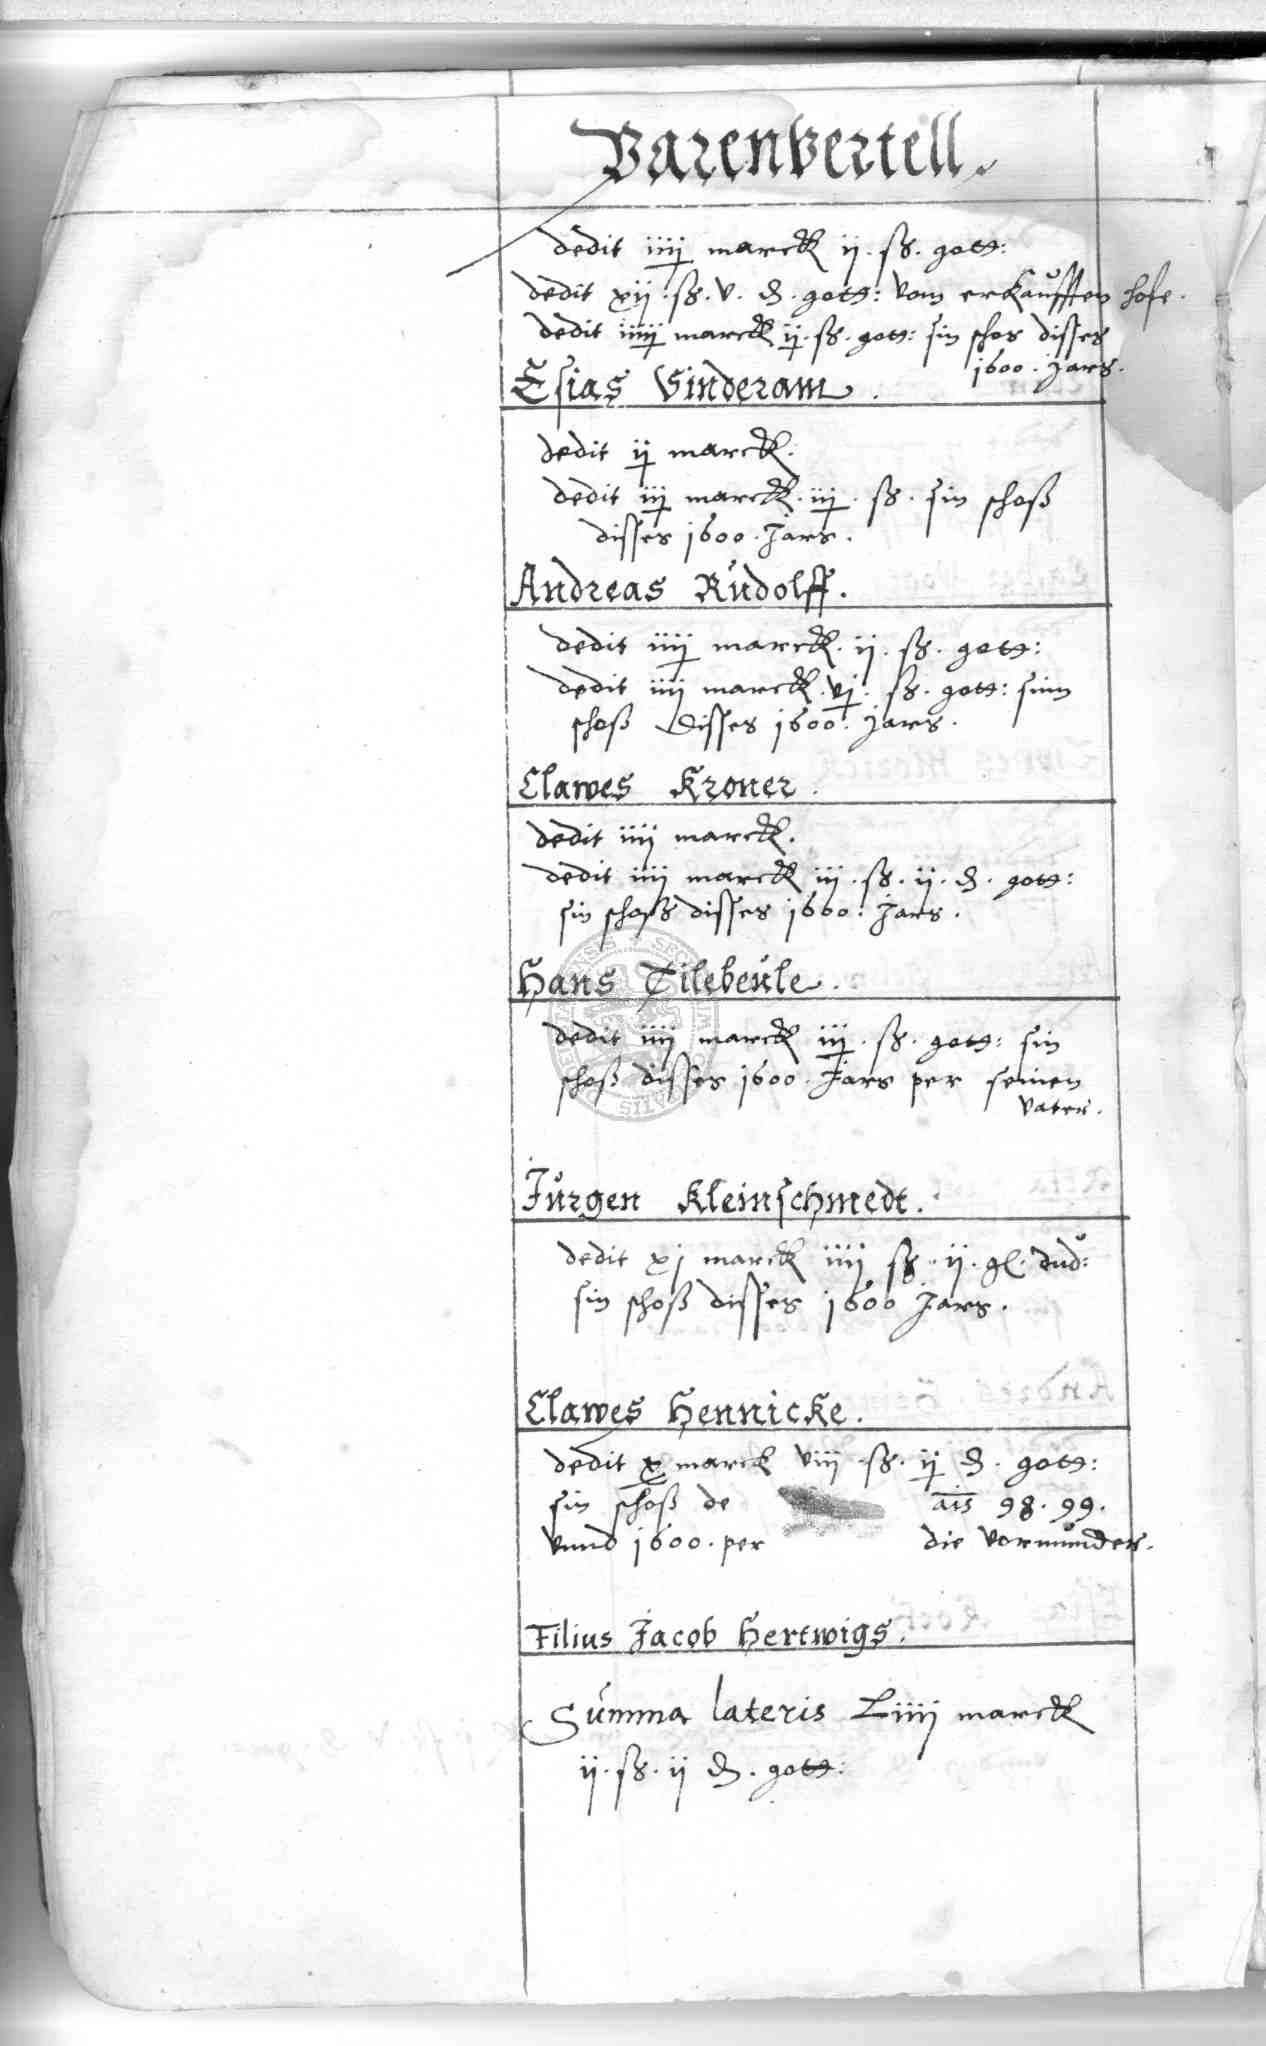 Varenvertell.
dedit iiij marck ij. ß. gott:
dedit xij. ß. v. ₰. gott: vom erkaufften hofe.
dedit iiiij marck ij. ß. gott: sin schos disses
1600. Jars.
Esias Sinderam.
dedit ij marck.
dedit iij marck. iij. ß. sin schoß
disses 1600. Jars.
Andreas Rudolff.
dedit iiij marck. ij. ß. gott:
dedit iiij marck. vj. ß. gott: sinn
schoß disses 1600. Jars.
Clawes Kroner.
dedit iiij marck.
dedit iiij marck iij. ß. ij. ₰. gott:
sin schoß disses 1600. Jars.
Hans Tilebeule.
dedit iiij marck iij. ß. gott: sin
schoß disses 1600. Jars per seinen
vater.
Jurgen Kleinschmedt.
dedit xj marck iiij ß. ij. gl. dud:
sin schoß disses 1600 Jars.
Clawes Hennicke.
dedit x marck viij. ß. ij ₰. gott:
sin schoß de ais 98. 99.
vnnd 1600. per die vormunder.
Filius Jacob Hertwigs.
Summa lateris Liiij marck
ij. ß. ij ₰. gott: